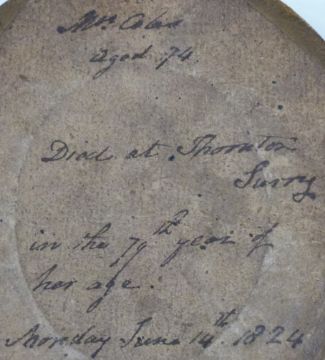 Mrs Coles
Aged 74
Died at Thornton
Surry
in the 79th year of
her age.
Monday June 14th. 1824